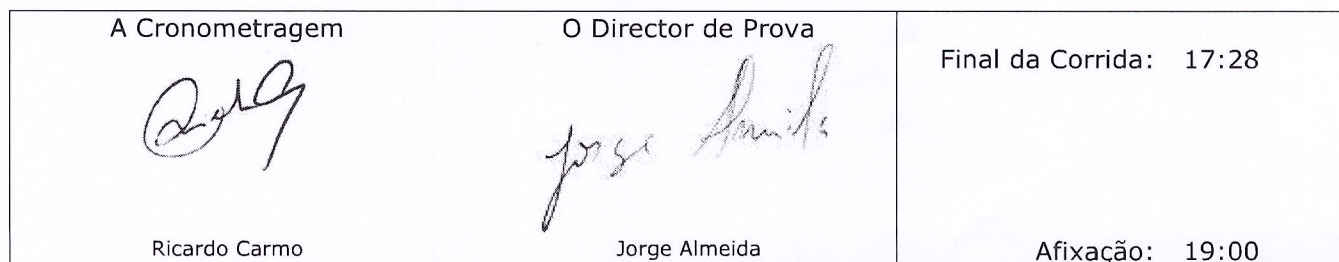 A Cronometragem
Ricardo Carmo
O Director de Prova
Jorge Almeida
Jorge Almeida
Final da Corrida: 17:28
Afixação: 19:00